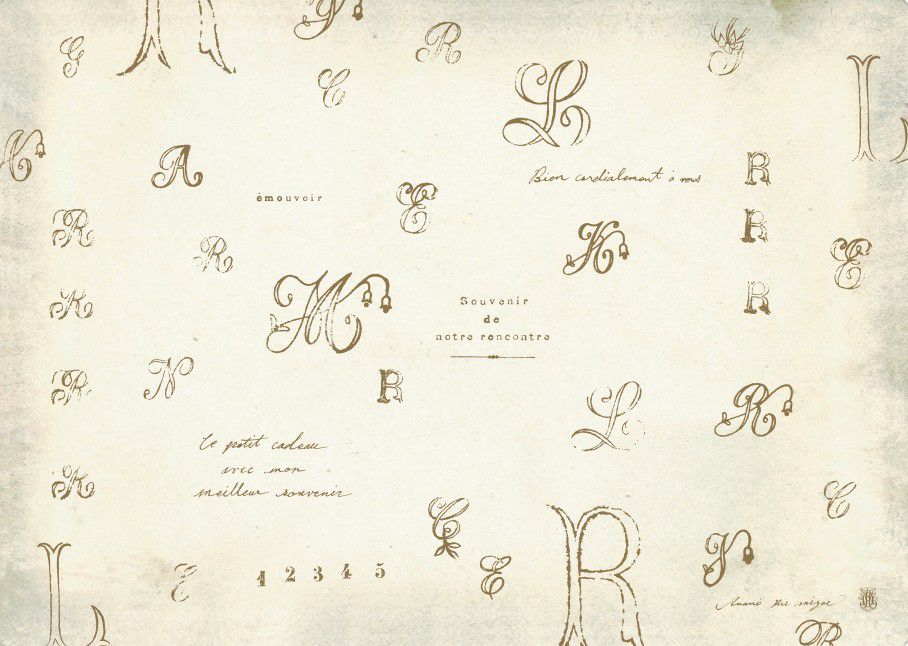 G
R
C
L
L
A
émouvoir
Bien cordialement à vous
R
E
R
R
K
R
E
M
Souvenir
de
notre rencontre
R
K
R
N
R
L
R
Le petit cadeau
avec mon
meilleur souvenir
K
C
C
R
L
E
1 2 3 4 5
E
R